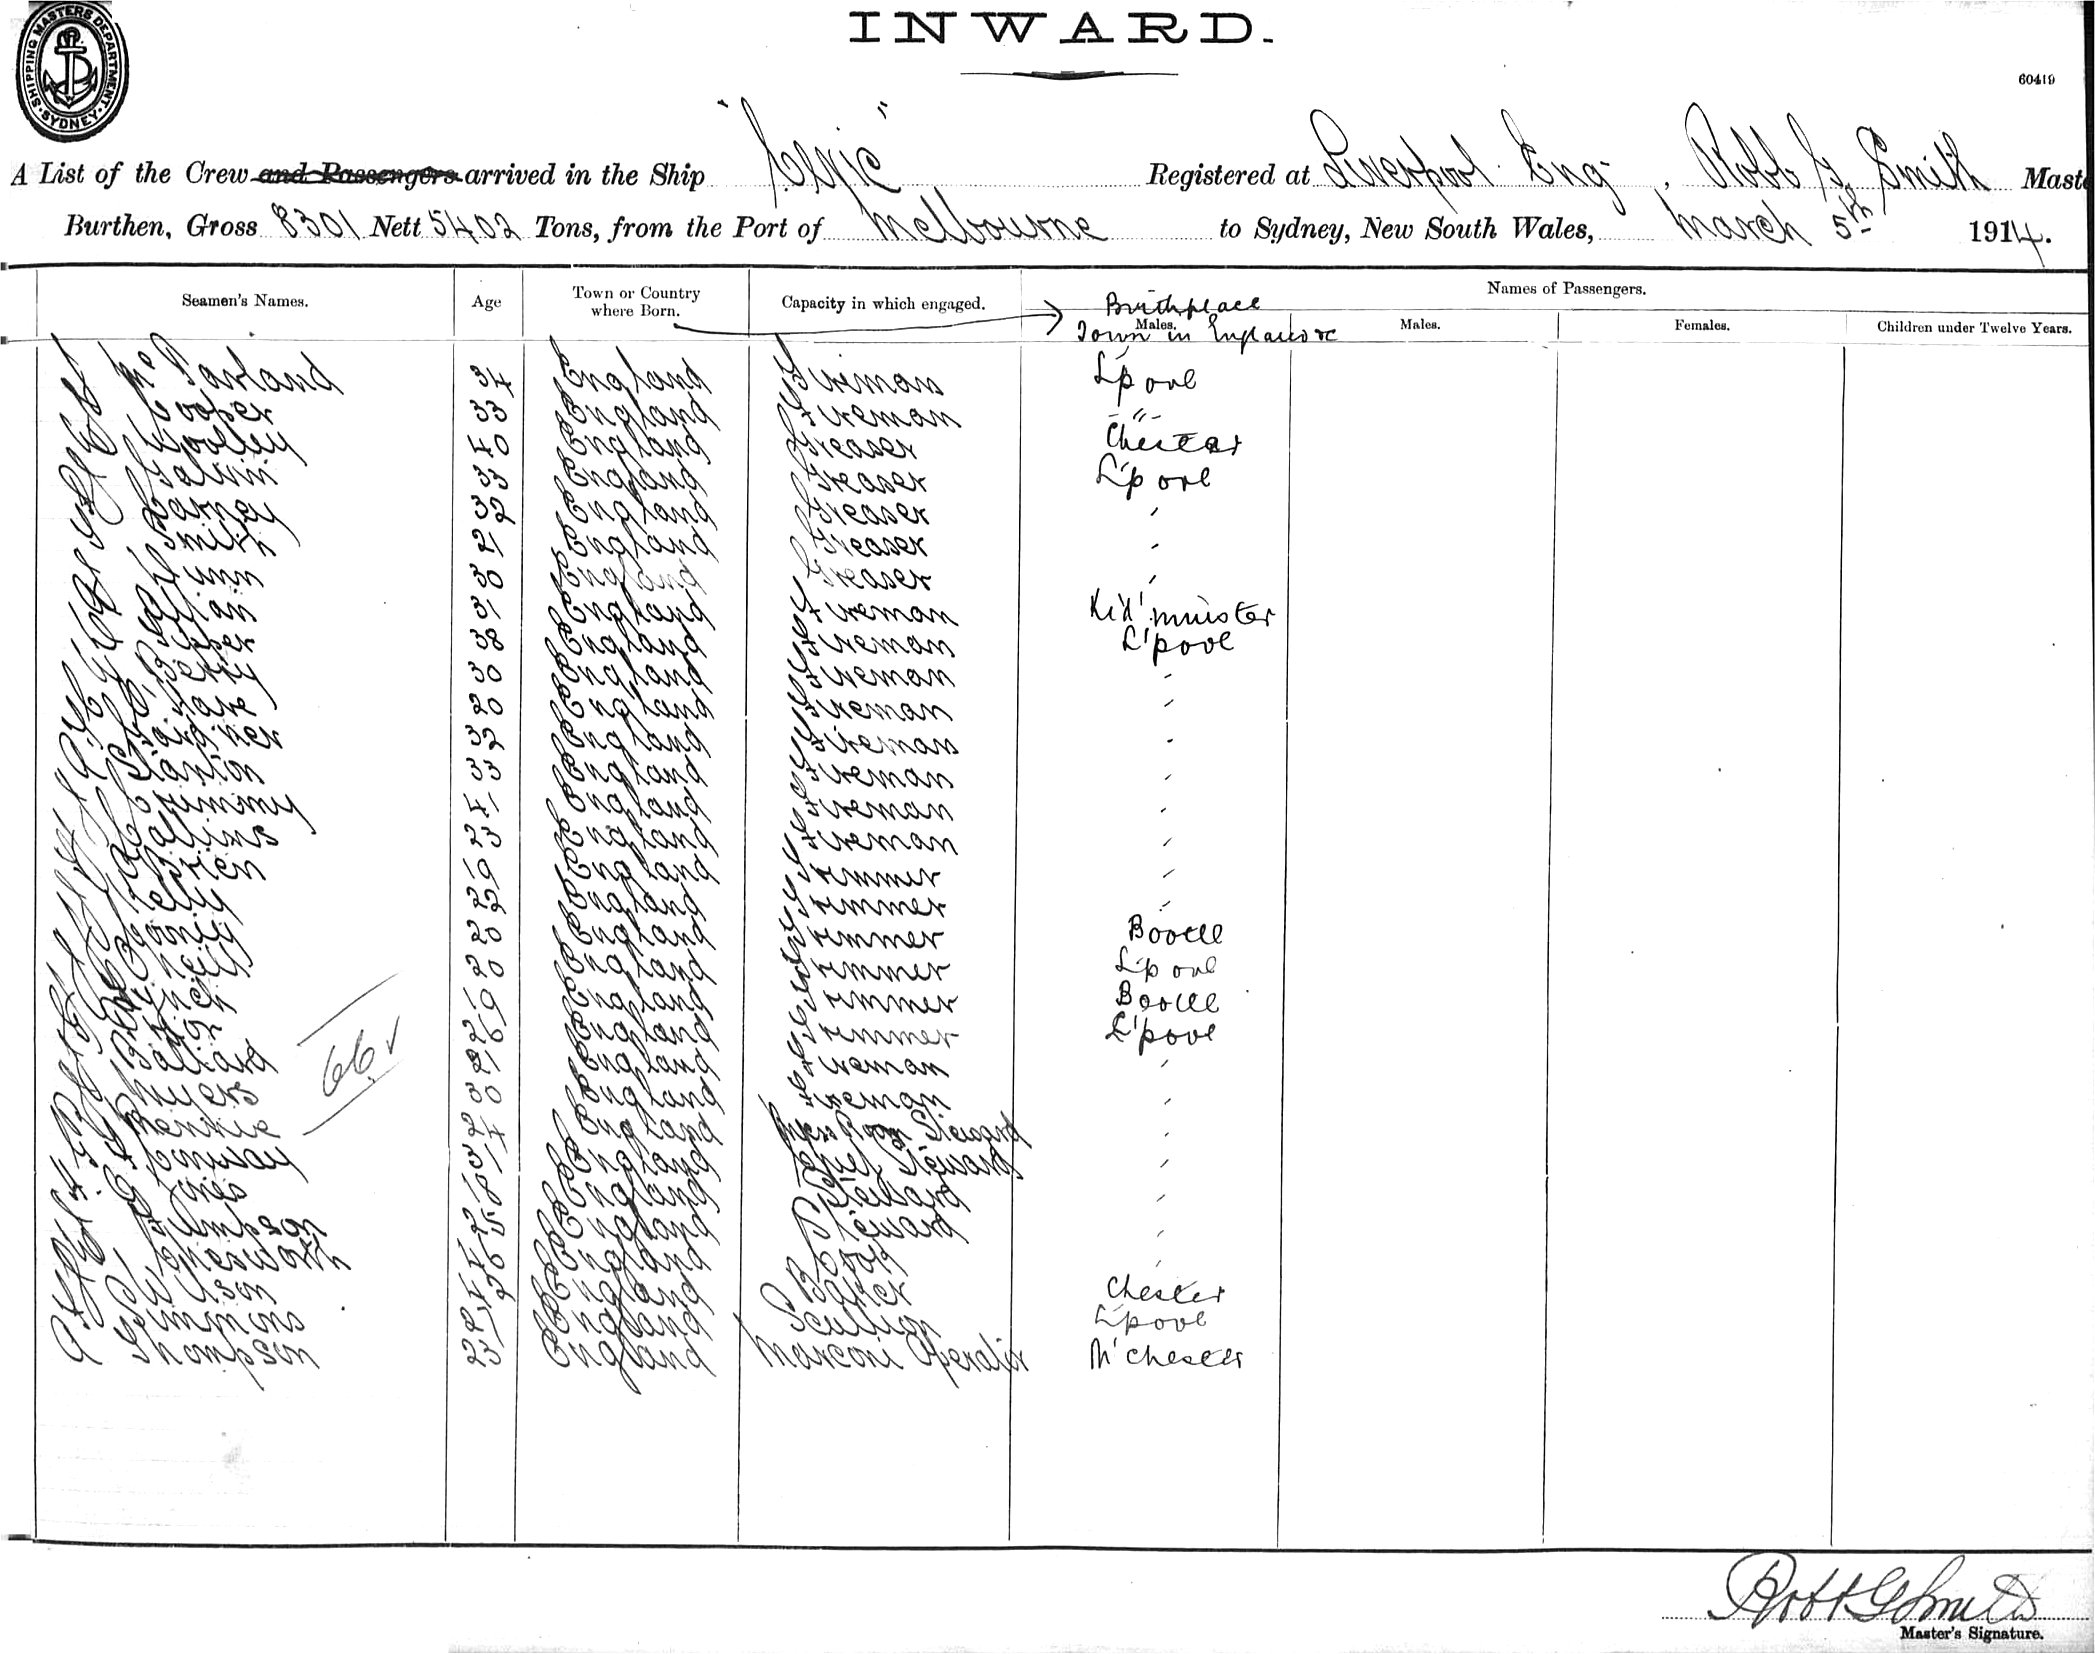 SHIPPING MASTERS DEPARTMENT. SYDNEY.
INWARD.
60419
A List of the Crew and Passengers arrived in the Ship "Cevic" Registered at Liverpool Eng, Robt G. Smith Maste
Burthen, Gross 8301 Nett 5402 Tons, from the Port of Melbourne to Sydney, New South Wales, March 5th 1914.
Seamen's Names. Age Town or Country where Born. Capacity in which engaged. Names of Passengers.
Birthplace
Males. Males. Females. Children under Twelve Years.
Town in England &c
34 England Fireman L'pool
Cooper 33 England Fireman -"-
Woolley 40 England Greaser Chester
Galvin 33 England Greaser L'pool
Carney 32 England Greaser "
Smith 21 England Greaser "
Dunn 30 England Greaser "
31 England Fireman Kid'minster
38 England Fireman L'pool
Berry 30 England Fireman "
Hare 20 England Fireman "
Gardiner 32 England Fireman "
Stanton 33 England Fireman "
Crummy 41 England Fireman "
Collins 23 England Fireman "
O'Brien 19 England Trimmer "
Kelly 22 England Trimmer "
Rooney 20 England Trimmer Bootle
O'Neill 20 England Trimmer L'pool
Lynch 19 England Trimmer Bootle
26 England Trimmer L'pool
Ballard 21 England Fireman "
Myers 30 England Fireman "
66
24 England Mess Room Steward "
Conway 31 England Chief Steward "
Jones 18 England Steward "
25 England Steward "
44 England Cook "
Wilson 26 England Baker Chester
Simmons 21 England Scullion L'pool
A Thompson 23 England Marconi Operator M'chester
Robt G Smith
Master's Signature.